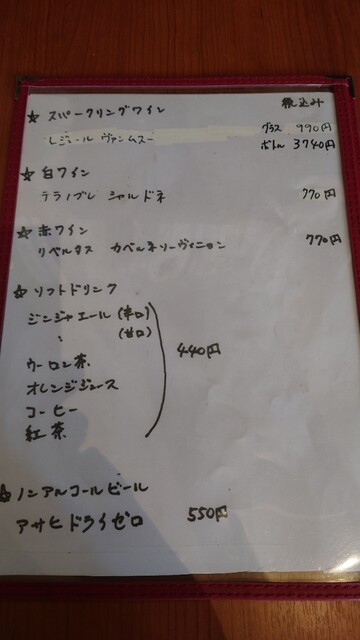 ☆ スパークリングワイン 税込み
レジェール ヴァンムスー グラス 990円
ボトル 3740円
☆ 白ワイン
テラノブレ シャルドネ 770円
☆ 赤ワイン
リベルタス カベルネソーヴィニヨン 770円
☆ ソフトドリンク
ジンジャエール (辛口)
〃 (甘口)
ウーロン茶 440円
オレンジジュース
コーヒー
紅茶
☆ ノンアルコールビール
アサヒドライゼロ 550円